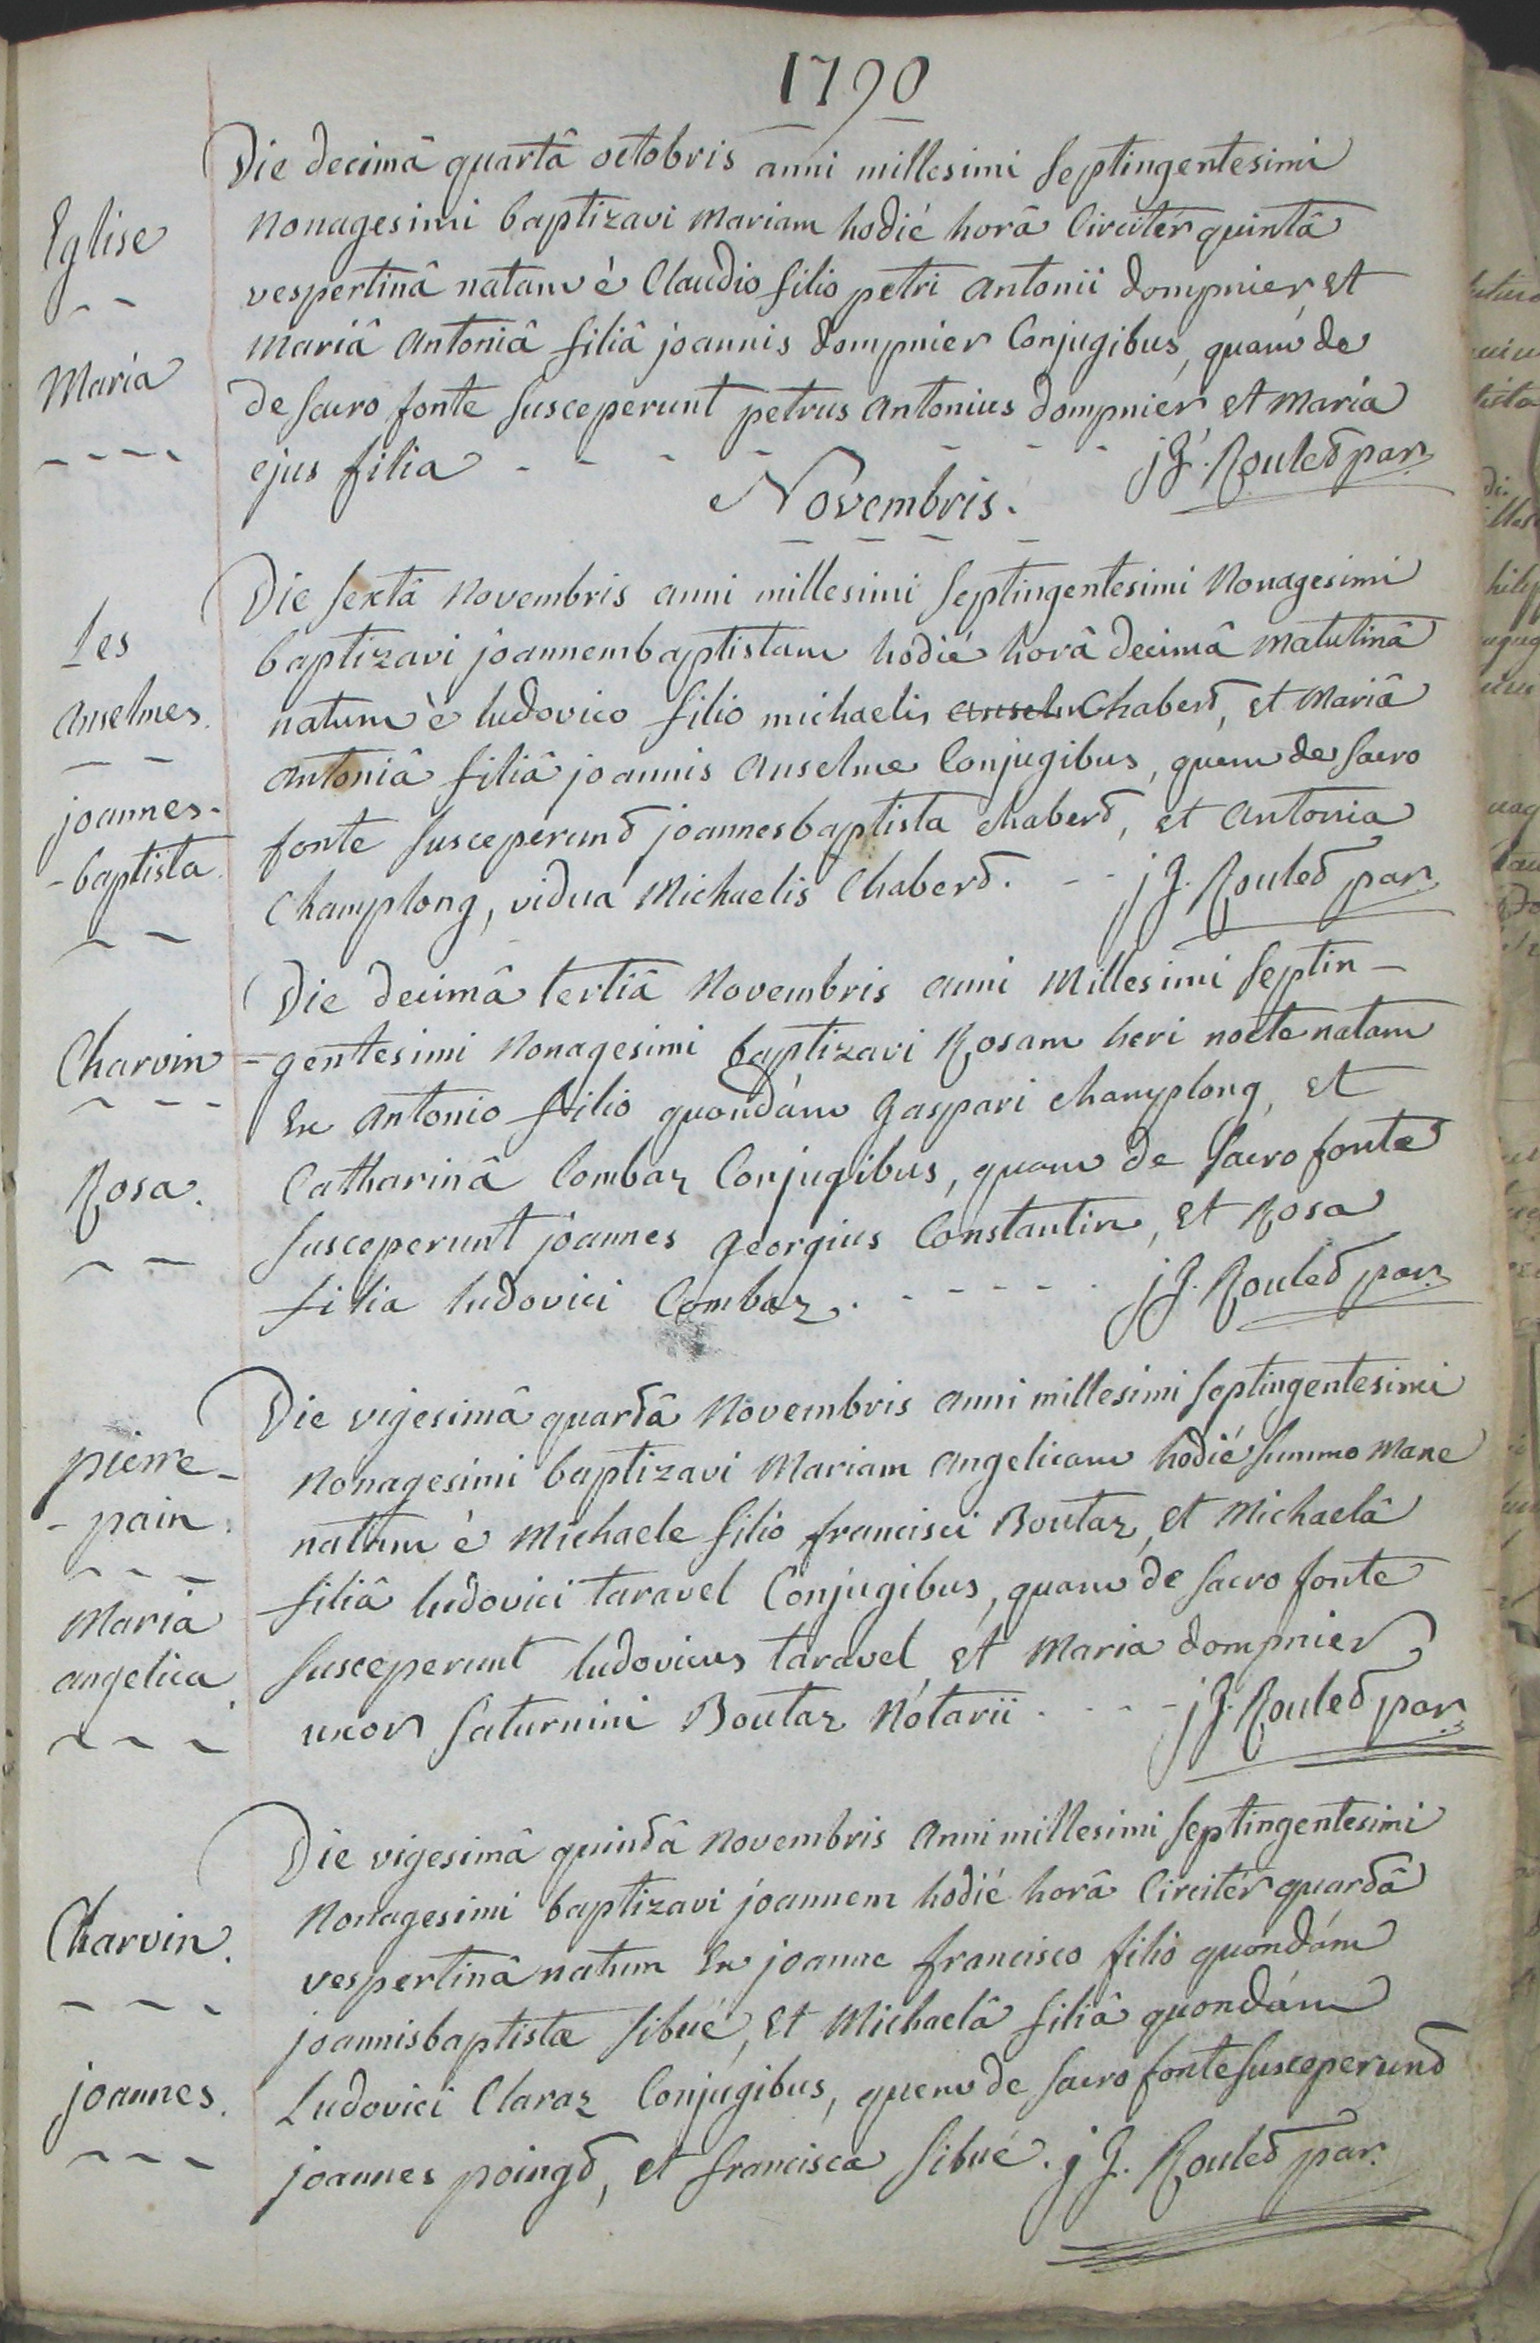 1790
Eglise
Maria
Die decimâ quartâ octobris anni millesimi septingentesimi
nonagesimi baptizavi mariam hodié horâ Circitér quintâ
vespertinâ natam è Claudio filio petri antonii dompnier et
mariâ antoniâ filiâ joannis dompnier Conjugibus, quam de
de sacro fonte susceperunt petrus antonius dompnier et maria
ejus filia - - - - - - - - j G. Rouled par
Novembris.
Les
anselmes.
joannes-
-baptista.
Die sextâ novembris anni millesimi septingentesimi nonagesimi
baptizavi joannembaptistam hodié horâ decimâ matutinâ
natum è ludovico filio michaelis anselm Chaberd, et mariâ
antoniâ filiâ joannis anselme Conjugibus, quem de sacro
fonte susceperund joannesbaptista chaberd, et antonia
Champlong, vidua Michaelis Chaberd. - - j G. Rouled par
Charvin
Rosa.
Die decimâ tertiâ novembris anni millesimi septin-
-gentesimi nonagesimi baptizavi Rosam heri nocte natam
Ex antonio filio quondám gaspari champlong, et
Catharinâ Combaz Conjugibus, quam de sacro fonte
susceperunt joannes georgius Constantin, et Rosa
filia ludovici Combaz. - - - - - j G. Rouled par
pierre-
-pain.
Maria
angelica.
Die vigesimâ quardâ novembris anni millesimi septingentesimi
nonagesimi baptizavi mariam angelicam hodié summo mane
natam è michaele filio francisci Boutaz, et michaelâ
filiâ ludovici taravel Conjugibus, quam de sacro fonte
susceperunt ludovicus taravel et maria dompnier
uxor saturnini Boutaz nótarii - - - j G. Rouled par
Charvin.
joannes.
Die vigesimâ quindâ novembris anni millesimi septingentesimi
nonagesimi baptizavi joannem hodié horâ Circitér quardâ
vespertinâ natum Ex joanne francisco filio quondám
joannisbaptistæ sibué, et Michaelâ filiâ quondám
Ludovici Claraz Conjugibus, quem de sacro fonte susceperund
joannes poingd, et francisca sibué. j G. Rouled par.